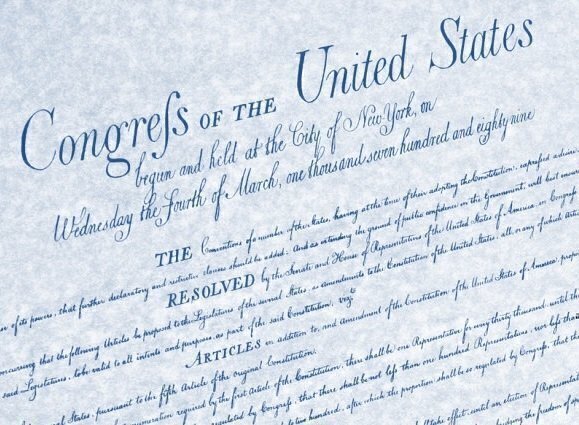 Congreſs OF THE United States
begun and held at the City of New York, on
Wednesday the Fourth of March, one thousand seven hundred and eighty nine
THE Conventions of a number of the States, having at the time of their adopting the Constitution, expressed a desire
of its powers, that further declaratory and restrictive clauses should be added: And as extending the ground of public confidence in the Government, will best
RESOLVED by the Senate and House of Representatives of the United States of America, in Congreſs
concurring that the following Articles be proposed to the Legislatures of the several States, as amendments to the Constitution of the United States, all, or any of which
said Legislatures, to be valid to all intents and purposes, as part of the said Constitution; vizt
ARTICLES in addition to, and Amendment of the Constitution of the United States of America,
States, pursuant to the fifth Article of the original Constitution.
enumeration required by the first Article of the Constitution, there shall be one Representative for every thirty thousand, until
regulated by Congreſs, that there shall be not less than one hundred Representatives, nor less than
hundred, after which the proportion shall be so regulated by Congreſs, that
shall take effect, until an election of
the freedom of